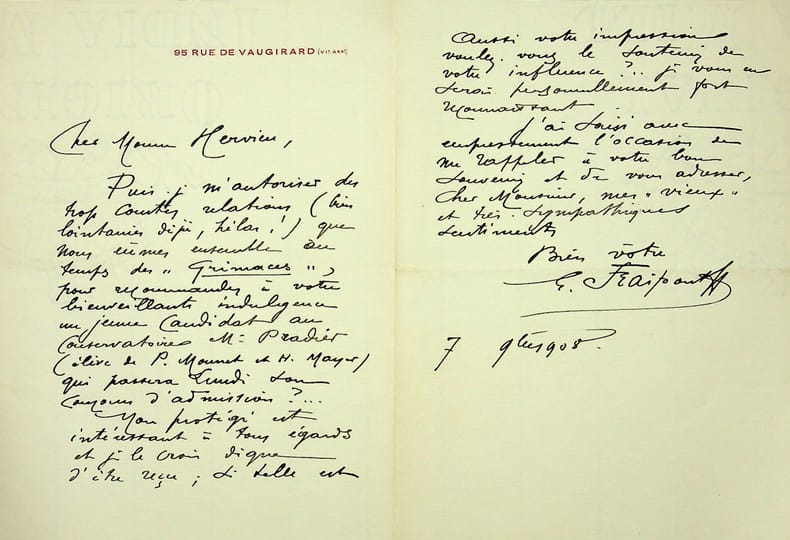 95 RUE DE VAUGIRARD (VIe ARRt)
Cher Monsieur Hervieu,
Puis-je m'autoriser des
trop courtes relations (bien
lointaines déjà, hélas!) que
nous eûmes ensemble au
temps des "Grimaces",
pour recommander à votre
bienveillante indulgence
un jeune Candidat au
Conservatoire Mr Pradier
(élève de P. Mounet et H. Mayer)
qui passera Lundi son
Concours d'admission?...
Mon protégé est
intéressant à tous égards
et je le crois digne
d'être reçu; si telle est
aussi votre impression
voulez-vous le soutenir de
votre influence?.. je vous en
serai personnellement fort
reconnaissant.
J'ai saisi avec
empressement l'occasion de
me rappeler à votre bon
souvenir et de vous adresser,
Cher Monsieur, mes "vieux"
et très sympathiques
sentiments
Bien vôtre
G. Fraipont
7 9bre 908.